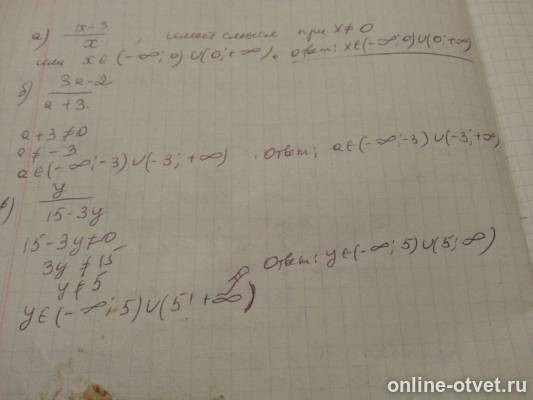 а) x-3 / x , имеет смысл при x≠0
или x∈(-∞;0)∪(0;+∞). ответ: x∈(-∞;0)∪(0;+∞)
б) 3a-2 / a+3.
a+3≠0
a≠-3
a∈(-∞;-3)∪(-3;+∞). Ответ: a∈(-∞;-3)∪(-3;+∞)
в) y / 15-3y
15-3y≠0
3y≠15
y≠5
y∈(-∞;5)∪(5;+∞) Ответ: y∈(-∞;5)∪(5;∞)
online-otvet.ru